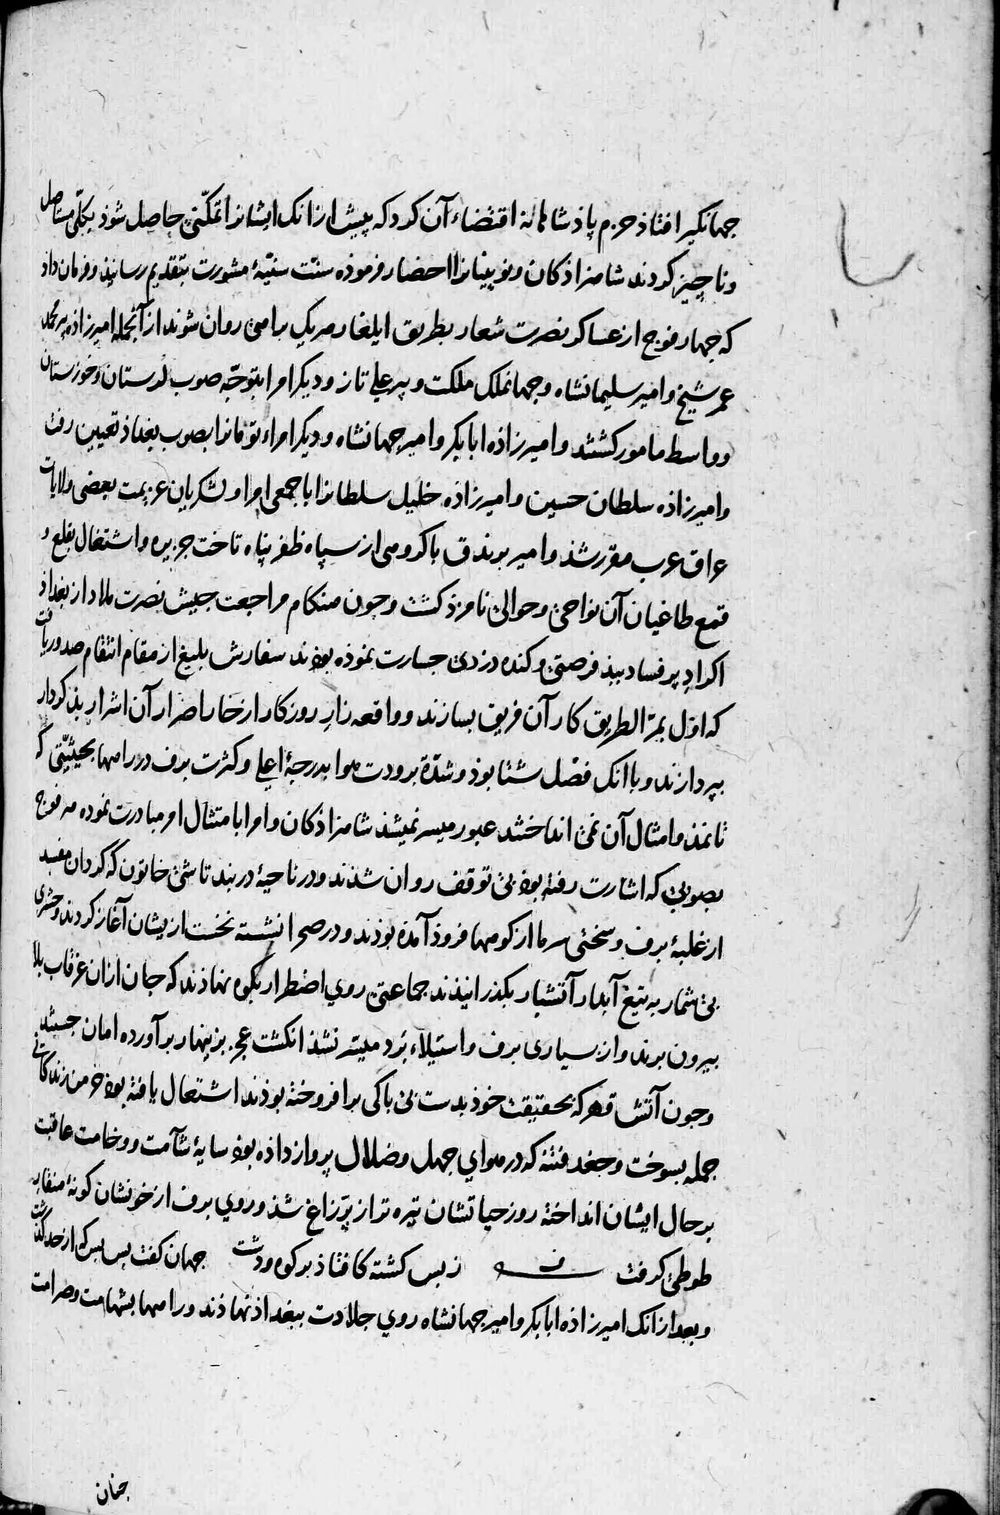 جهانگیر افتاذ حزم پاذشاهانه اقتضاء آن کرد که پیش ازانک ایشانرا تمکّنی حاصل شوذ بکلّی مستاصل
وناچیز کردند شاهزاذکان ونویینانرا احضار فرموذه سنّت سنیّهٔ مشورت بتقدیم رسانیذ وفرمان داد
که چهار فوج از عساکر نصرت شعار بطریق ایلغار هریک براهی روان شوند از آنجمله امیرزاذه پیر محمد
عمر شیخ وامیر سلیمانشاه وجهانملک ملکت وپیرعلی تاز ودیکر امرا بتوجّه صوب لرستان وخوزستان
وواسط مامور کشتند وامیرزاذه ابابکر وامیر جهانشاه ودیکر امراء تومانرا بصوب بغداذ تعیین رفت
وامیرزاذه سلطان حسین وامیرزاذه خلیل سلطانرا با جمعی امرا ولشکریان عزیمت بعضی ولایات
عراق عرب مقرر شذ وامیر برندق با کروهی از سپاه ظفر پناه تاخت جزیره واشتغال بقلع و
قمع طاغیان آن نواحی وحوالی نامزذ کشت وچون هنکام مراجعت جیش نصرت ملاذ از بغداذ
اکراد پر فساد ببذ فرصتی وکنده دزدی جسارت نموذه بوذند سفارش بلیغ از مقام انتقام صدور یافت
که اوّل بمرّ الطریق کار آن فریق بسازند وواقعه زارِ روزکار از خار اضرار آن اشرار بذ کردار
بپردازند وبا انک فصل شتا بوذ وشدّة برودت هوا بدرجهٔ اعلی وکثرت برف در راهها بحیثیّتی که
تا نمذ وامثال آن نمی انداختند عبور میسر نمیشذ شاهزاذکان وامرا بامتثال امر مبادرت نموده هر فوج
بصوبی که اشارت رفته بوذ بی توقف روان شذند ودر ناحیهٔ دربند تاشی خاتون که کردان مفسد
از غلبهٔ برف وسختی سرما از کوهها فروذ آمذه بوذند ودر صحرا نشسته نخست ازیشان آغاز کردند وحشری
بی شمار به تیغ آبدار آتشبار بکذرانیذند جماعتی روی اضطرار بکوه نهاذند که جان ازان غرقاب بلا
بیرون برند واز بسیاری برف واستیلاء برد میسّر نشذ انکشت عجز بزینهار برآورده امان جستند
وچون آتش قهر که بحقیقت خوذ بدست بی باکی برافروخته بوذند اشتعال یافته بوذ خرمن زندکانی
جمله بسوخت وجغد فتنه که در هوای جهل وضلال پرواز داذه بوذ سایهٔ شآمت ووخامت عاقبت
بر حال ایشان انداخته روز حیاتشان تیره تر از پر زاغ شذ وروی برف از خونشان کونهٔ منقار
طوطی کرفت ز بس کشته کافتاذ بر کوه ودشت جهان کفت بس بس که از حد کذشت
وبعد ازانک امیرزاذه ابابکر وامیر جهانشاه روی جلادت ببغداذ نهاذند وراهها بشهامت وصرامت
چنان